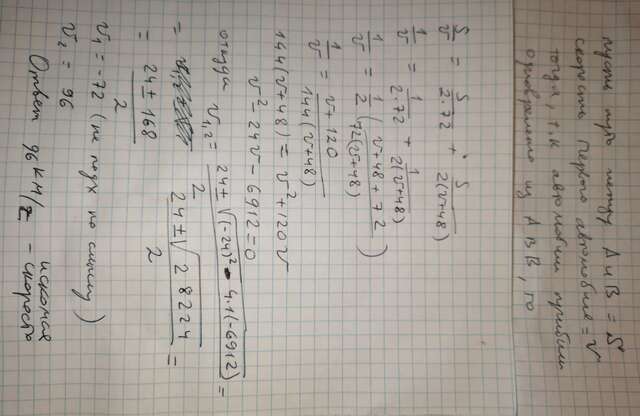 пусть путь между A и B = S
скорость первого автомобиля = v
тогда, т.к автомобили прибыли
одновременно из A в B, то
S/v = S/(2·72) + S/(2(v+48))
1/v = 1/(2·72) + 1/(2(v+48))
1/v = 1/2 ( (v+48+72)/(72(v+48)) )
1/v = (v+120)/(144(v+48))
144(v+48) = v² + 120v
v² - 24v - 6912 = 0
откуда v₁,₂ = (24 ± √((-24)² - 4·1(-6912)))/2 =
= (24 ± √28224)/2 =
= (24 ± 168)/2
v₁ = -72 (не подх по смыслу)
v₂ = 96
Ответ 96 км/ч - искомая скорость